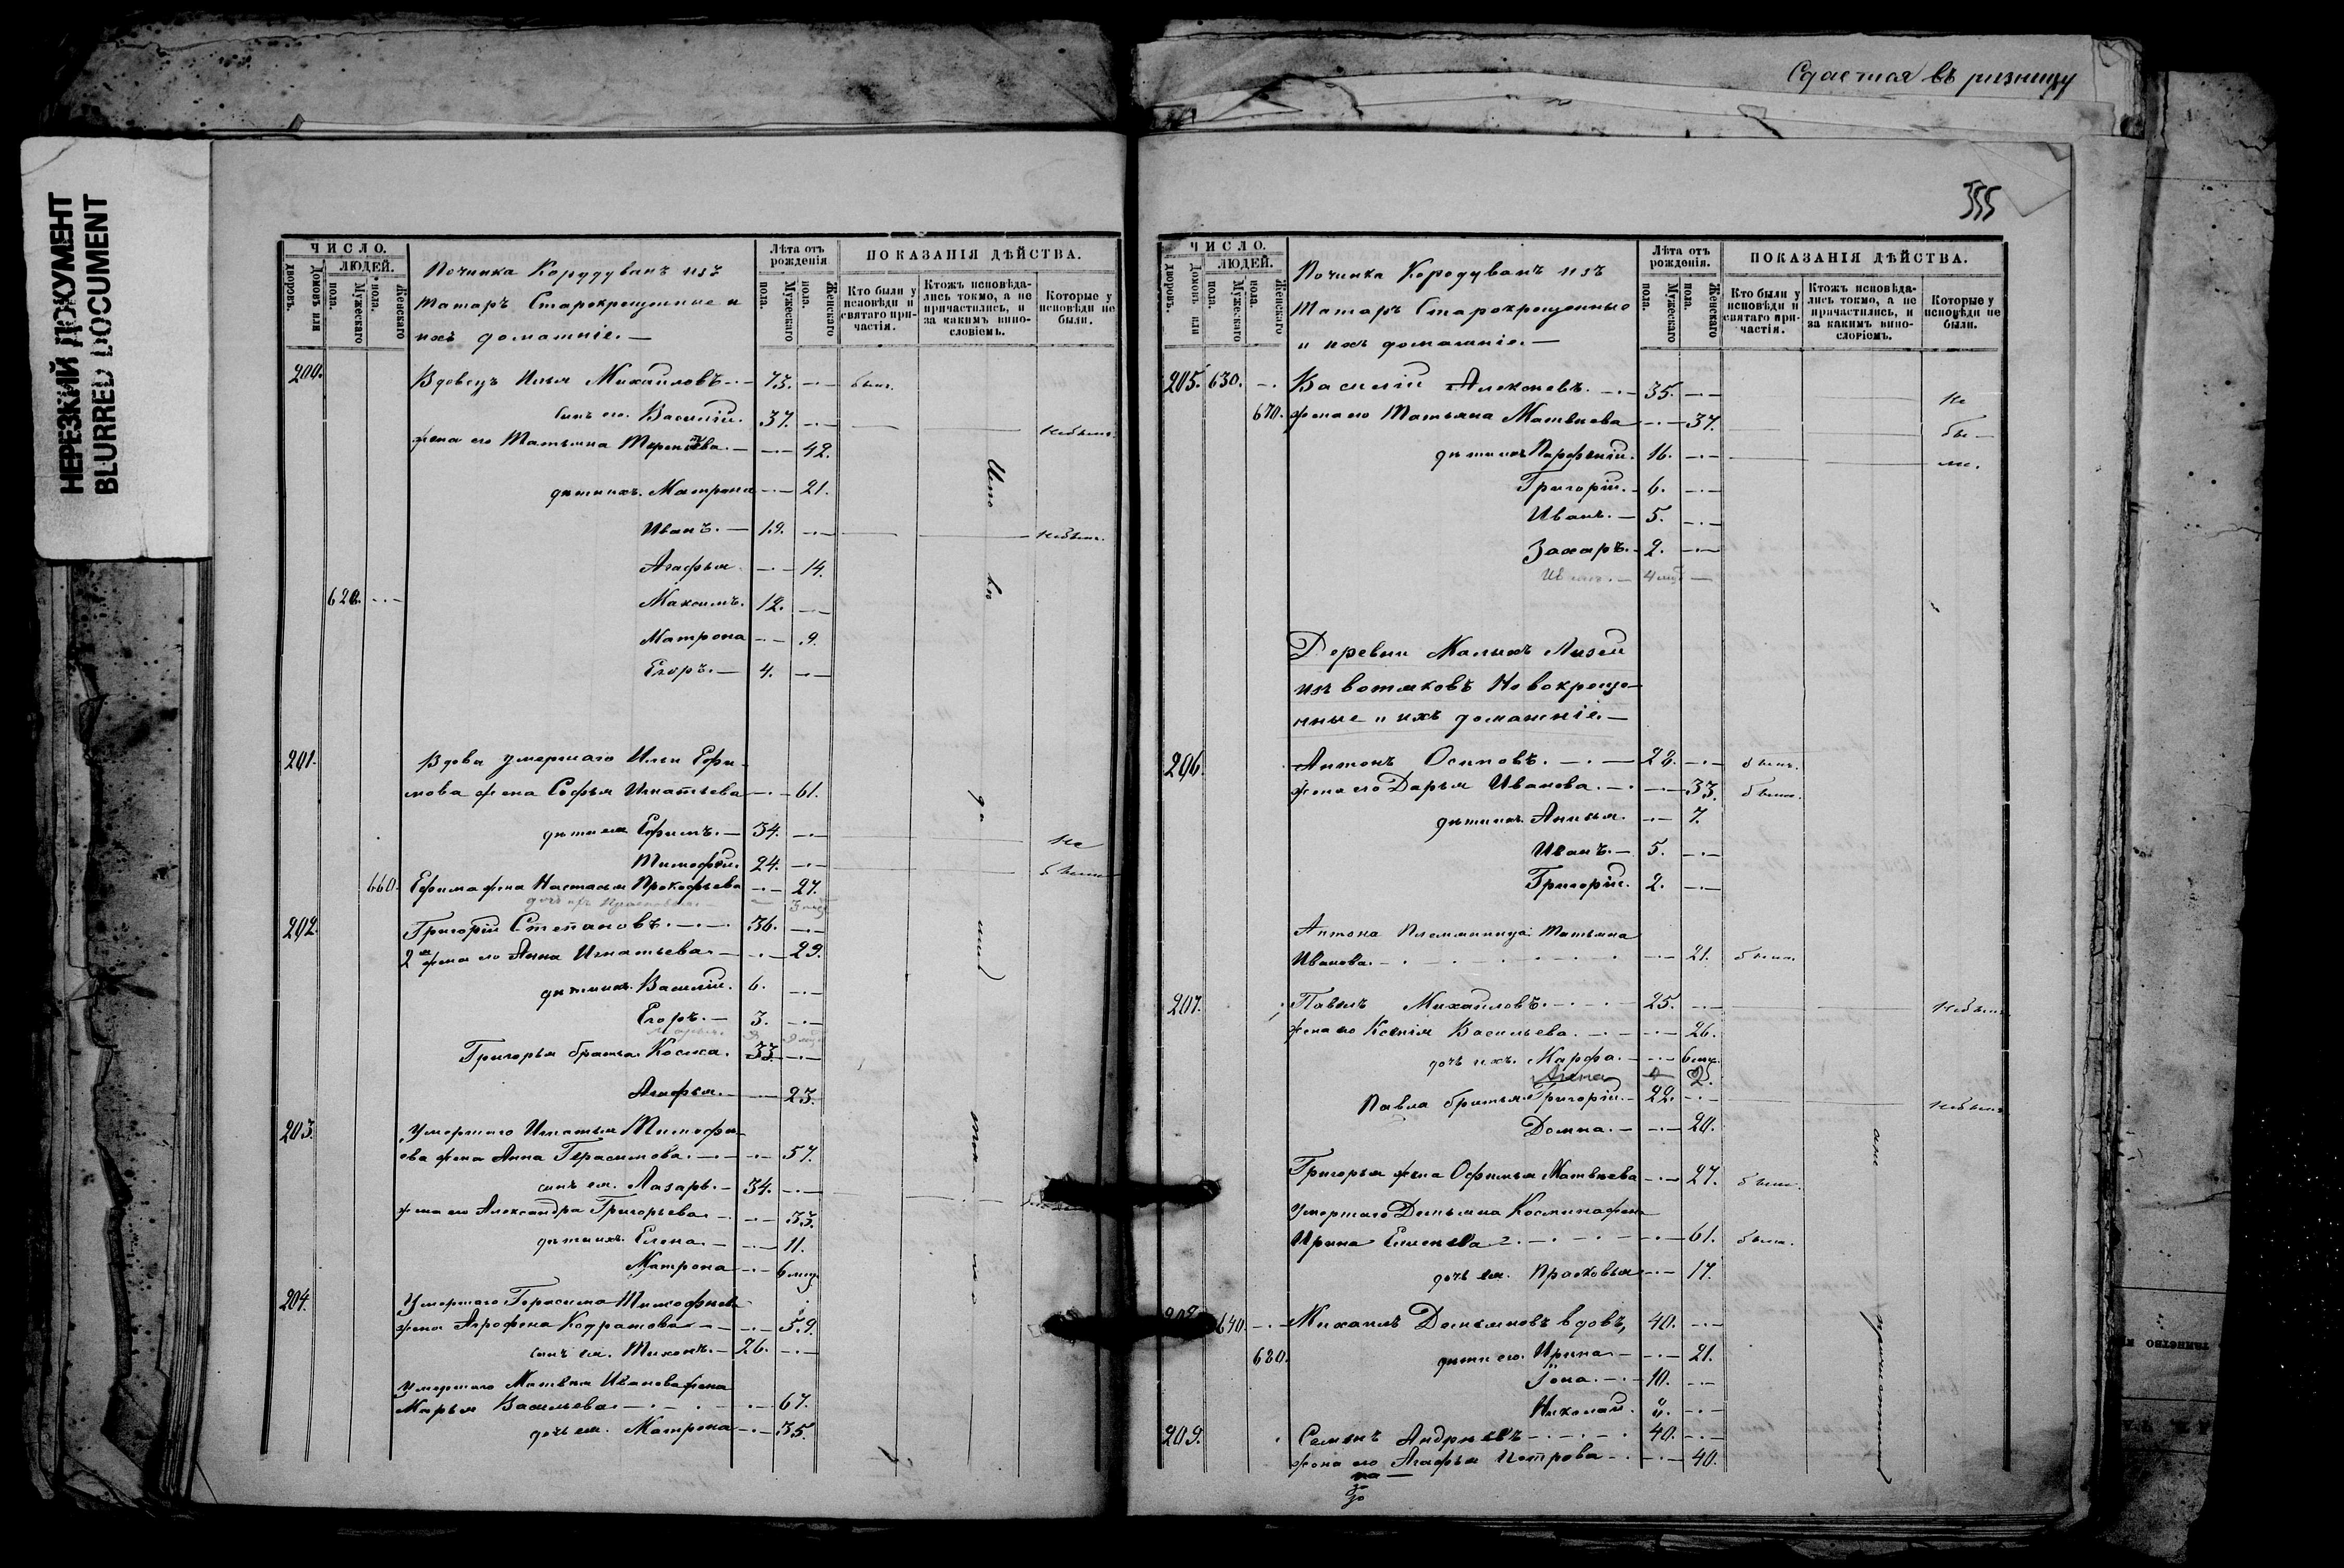 НЕРЕЗКИЙ ДОКУМЕНТ
BLURRED DOCUMENT
ЧИСЛО.
Домовъ или дворовъ.
ЛЮДЕЙ.
Мужескаго пола.
Женскаго пола.
Починка Кородуванъ изъ
татаръ Старокрещенные и
ихъ домашніе. —
Лѣта отъ рожденія
Мужескаго пола.
Женскаго пола.
ПОКАЗАНІЯ ДѢЙСТВА.
Кто были у исповѣди и святаго причастія.
Ктожъ исповѣдались токмо, а не причастились, и за какимъ винословіемъ.
Которые у исповѣди не были.
200. Вдовецъ Илья Михайловъ. 73. были.
сынъ его Василій. 37. небылъ.
жена его Татьяна Терентьева. 42.
дѣти ихъ. Матрона 21.
Иванъ. 19. небылъ.
Агафья 14.
620. Максимъ. 12.
Матрона 9.
Егоръ. 4.
201. Вдова умершаго Ильи Ефи-
мова жена Софья Игнатьева 61.
дѣти ея Ефимъ. 34. не
Тимофей. 24. были
660. Ефима жена Настасья Прокофьева 27.
202. Григорій Степановъ. 36.
2я жена его Анна Игнатьева 29.
дѣти ихъ. Василій. 6.
Егоръ. 3.
Григорья братья Косма. 33.
Агафья. 23.
203. Умершаго Игнатья Тимофе-
ева жена Анна Герасимова. 57.
сынъ ея. Лазарь. 34.
жена его Александра Григорьева 33.
дѣти ихъ. Елена. 11.
Матрона 6 мѣс.
204. Умершаго Герасима Тимофеева
жена Агрофена Кодратова 59.
сынъ ея. Тихонъ. 26.
Умершаго Матвея Иванова жена
Марья Васильева 67.
дочь ея. Матрона 35.
Сдается въ ризницу
355
ЧИСЛО.
Домовъ или дворовъ.
ЛЮДЕЙ.
Мужескаго пола.
Женскаго пола.
Починка Кородуванъ изъ
Татаръ Старокрещенные
и ихъ домашніе. —
Лѣта отъ рожденія.
Мужескаго пола.
Женскаго пола.
ПОКАЗАНІЯ ДѢЙСТВА.
Кто были у исповѣди и святаго причастія.
Ктожъ исповѣдались токмо, а не причастились, и за какимъ винословіемъ.
Которые у исповѣди не были.
205. 630. Василій Алексѣевъ. 35. не
670. жена его Татьяна Матвеева 37. бы —
дѣти ихъ Парфеній. 16. ли.
Григорій. 6.
Иванъ. 5.
Захаръ. 2.
Деревни Малыхъ Лызей
изъ вотяковъ Новокреще-
нные и ихъ домашніе. —
206. Антонъ Осиповъ. 28. былъ.
жена его Дарья Иванова. 33. была.
дѣти ихъ. Анисья. 7.
Иванъ. 5.
Григорій. 2.
Антона племянница Татьяна
Иванова. 21. была.
207. Павелъ Михайловъ. 25. небылъ
жена его Ксенія Васильева. 26.
дочь ихъ. Марфа. 6 мѣс.
Анна 2.
Павла братья Григорій. 22. небылъ
Домна. 20.
Григорья жена Офимья Матвеева 27. была.
Умершаго Демьяна Космина жена
Ирина Елисеева 61. была.
дочь ея. Прасковья 17.
208. 640. Михаилъ Демьяновъ вдовъ, 40.
680. дѣти его. Ирина 21.
Іона. 10.
Николай. 8.
209. Семенъ Андреевъ 40.
жена его Агафья Петрова 40.